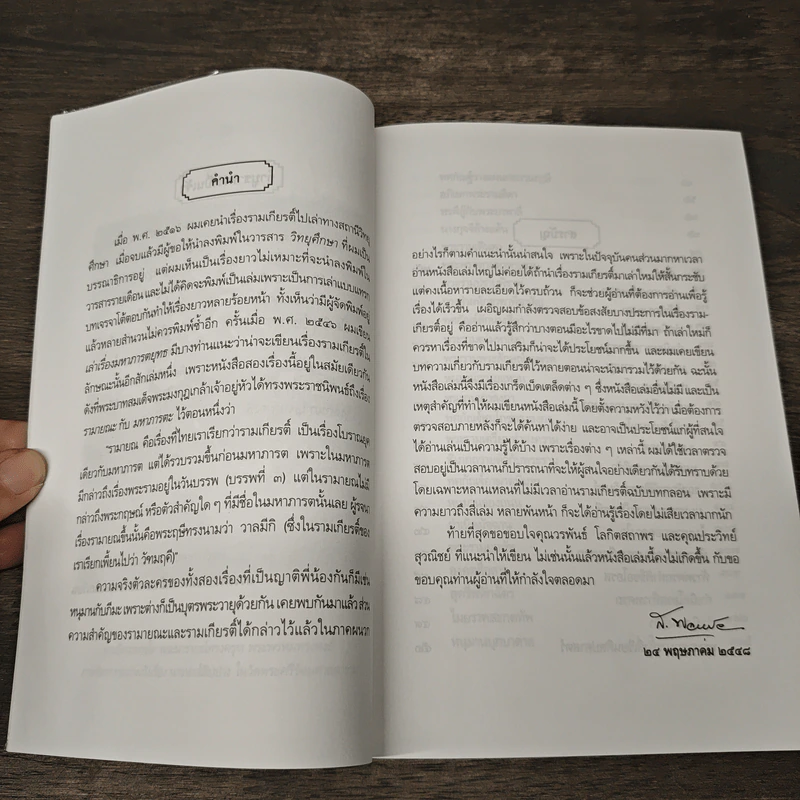 คำนำ
เมื่อ พ.ศ. ๒๕๑๖ ผมเคยนำเรื่องรามเกียรติ์ไปเล่าทางสถานีวิทยุ
ศึกษา เมื่อจบแล้วมีผู้ขอให้นำลงพิมพ์ในวารสาร วิทยุศึกษา ที่ผมเป็น
บรรณาธิการอยู่ แต่ผมเห็นเป็นเรื่องยาวไม่เหมาะที่จะนำลงพิมพ์ใน
วารสารรายเดือน และไม่ได้คิดจะพิมพ์เป็นเล่มเพราะเป็นการเล่าแบบแทรก
บทเจรจาโต้ตอบกันทำให้เรื่องยาวหลายร้อยหน้า ทั้งเห็นว่ามีผู้จัดพิมพ์อยู่
แล้วหลายสำนวนไม่ควรพิมพ์ซ้ำอีก ครั้นเมื่อ พ.ศ. ๒๕๔๖ ผมเขียน
เล่าเรื่องมหาภารตยุทธ มีบางท่านแนะว่าน่าจะเขียนเรื่องรามเกียรติ์ใน
ลักษณะนั้นอีกสักเล่มหนึ่ง เพราะหนังสือสองเรื่องนี้อยู่ในสมัยเดียวกัน
ดังที่พระบาทสมเด็จพระมงกุฎเกล้าเจ้าอยู่หัวได้ทรงพระราชนิพนธ์ถึงเรื่อง
รามายณะ กับ มหาภารตะ ไว้ตอนหนึ่งว่า
"รามายณ คือเรื่องที่ไทยเราเรียกว่ารามเกียรติ์ เป็นเรื่องโบราณยุค
เดียวกับมหาภารต แต่ได้รวบรวมขึ้นก่อนมหาภารต เพราะในมหาภารต
มีกล่าวถึงเรื่องพระรามอยู่ในวันบรรพ (บรรพที่ ๓) แต่ในรามายณไม่มี
กล่าวถึงพระกฤษณ์ หรือตัวสำคัญใด ๆ ที่มีชื่อในมหาภารตนั้นเลย ผู้รจนา
เรื่องรามายณขึ้นนั้นคือพระฤษีทรงนามว่า วาลมีกิ (ซึ่งในรามเกียรติ์ของ
เราเรียกเพี้ยนไปว่า วัทมฤคี)"
ความจริงตัวละครของทั้งสองเรื่องที่เป็นญาติพี่น้องกันก็มีเช่น
หนุมานกับภีมะ เพราะต่างก็เป็นบุตรพระวายุด้วยกัน เคยพบกันมาแล้ว ส่วน
ความสำคัญของรามายณะและรามเกียรติ์ได้กล่าวไว้แล้วในภาคผนวก
อย่างไรก็ตามคำแนะนำนั้นน่าสนใจ เพราะในปัจจุบันคนส่วนมากหาเวลา
อ่านหนังสือเล่มใหญ่ไม่ค่อยได้ถ้านำเรื่องรามเกียรติ์มาเล่าใหม่ให้สั้นกระชับ
แต่คงเนื้อหารายละเอียดไว้ครบถ้วน ก็จะช่วยผู้อ่านที่ต้องการอ่านเพื่อรู้
เรื่องได้เร็วขึ้น เผอิญผมกำลังตรวจสอบข้อสงสัยบางประการในเรื่องราม-
เกียรติ์อยู่ คืออ่านแล้วรู้สึกว่าบางตอนมีอะไรขาดไปไม่มีที่มา ถ้าเล่าใหม่ก็
ควรหาเรื่องที่ขาดไปมาเสริมก็น่าจะได้ประโยชน์มากขึ้น และผมเคยเขียน
บทความเกี่ยวกับรามเกียรติ์ไว้หลายตอนน่าจะนำมารวมไว้ด้วยกัน ฉะนั้น
หนังสือเล่มนี้จึงมีเรื่องเกร็ดเบ็ดเตล็ดต่าง ๆ ซึ่งหนังสือเล่มอื่นไม่มี และเป็น
เหตุสำคัญที่ทำให้ผมเขียนหนังสือเล่มนี้ โดยตั้งความหวังไว้ว่า เมื่อต้องการ
ตรวจสอบภายหลังก็จะได้ค้นหาได้ง่าย และอาจเป็นประโยชน์แก่ผู้ที่สนใจ
ได้อ่านเล่นเป็นความรู้ได้บ้าง เพราะเรื่องต่าง ๆ เหล่านี้ ผมได้ใช้เวลาตรวจ
สอบอยู่เป็นเวลานานก็ปรารถนาที่จะให้ผู้สนใจอย่างเดียวกันได้รับทราบด้วย
โดยเฉพาะหลานเหลนที่ไม่มีเวลาอ่านรามเกียรติ์ฉบับบทกลอน เพราะมี
ความยาวถึงสี่เล่ม หลายพันหน้า ก็จะได้อ่านรู้เรื่องโดยไม่เสียเวลามากนัก
ท้ายที่สุดขอขอบใจคุณวรพันธ์ โลกิตสถาพร และคุณประวิทย์
สุวณิชย์ ที่แนะนำให้เขียน ไม่เช่นนั้นแล้วหนังสือเล่มนี้คงไม่เกิดขึ้น กับขอ
ขอบคุณท่านผู้อ่านที่ให้กำลังใจตลอดมา
ส. พลายน้อย
๒๔ พฤษภาคม ๒๕๔๘